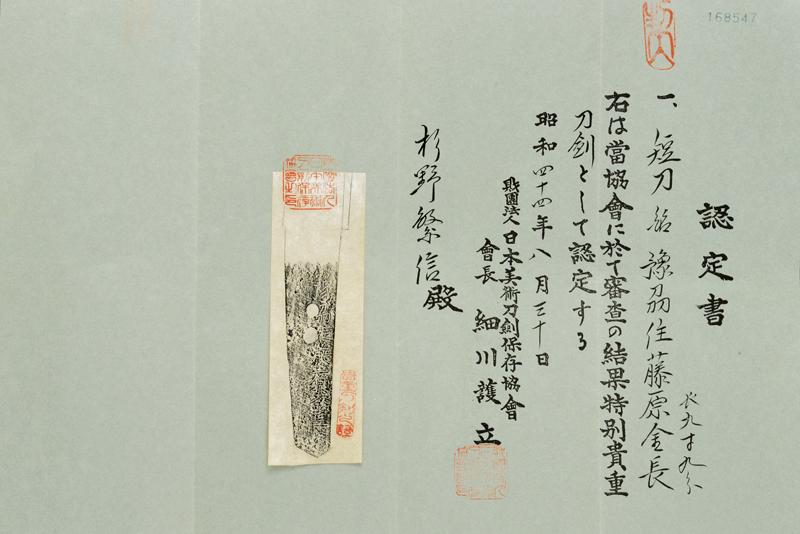 168547
認定書
一、短刀 銘 豫州住藤原金長
長九寸九分
右は當協會に於て審査の結果特別貴重
刀劍として認定する
昭和四十四年八月三十日
財團法人日本美術刀劍保存協會
會長 細川護立
杉野繁信殿